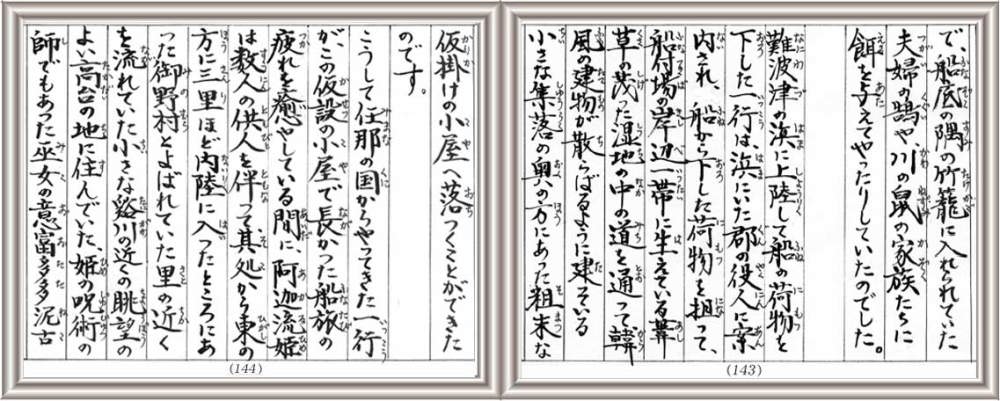 で、船底の隅の竹籠に入れられていた
夫婦の鵠や、川の鼠の家族たちに
餌を与えてやったりしていたのでした。
難波津の浜に上陸して船の荷物を
下した一行は、浜にいた郡の役人に案
内され、船から下した荷物を担って、
船付場の岸辺一帯に生えている葦
草の茂った湿地の中の道を通って韓
風の建物が散らばるように建ている
小さな集落の奥の方にあった粗末な
(143)
仮掛けの小屋へ落つくことができた
のです。
こうして任那の国からやってきた一行
が、この仮設の小屋で長かった船旅の
疲れを癒やしている間に阿迦流姫
は数人の供人を伴って其処から東の
方に三里ほど内陸に入ったところにあ
った御野村とよばれていた里の近く
を流れていた小さな谿川の近くの眺望の
よい高台の地に住んでいた、姫の呪術の
師でもあった巫女の意富多多泥古
(144)